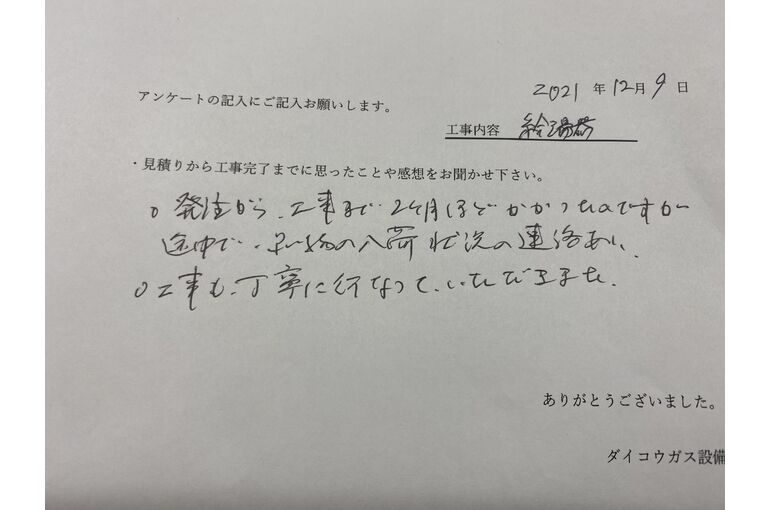 2021年12月9日
アンケートの記入にご記入お願いします。
工事内容 給湯器
・見積りから工事完了までに思ったことや感想をお聞かせ下さい。
○ 発注から、工事まで 2ヶ月ほどかかったのですが
途中で、品物の入荷状況の連絡あい、
○工事も、丁寧に行なって、いただきました。
ありがとうございました。
ダイコウガス設備